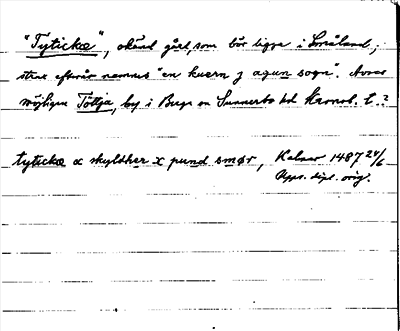 "Tytickæ", okänd gård, som bör ligga i Småland;
strax efteråt nämnes "en kuærn j agun sogn". Avses
möjligen Töttja, by i Berga sn Sunnerbo hd Kronob. l.?
tytickæ α skyldher x pund smør, Kalmar 1487 24/6
Upps. dipl. orig.